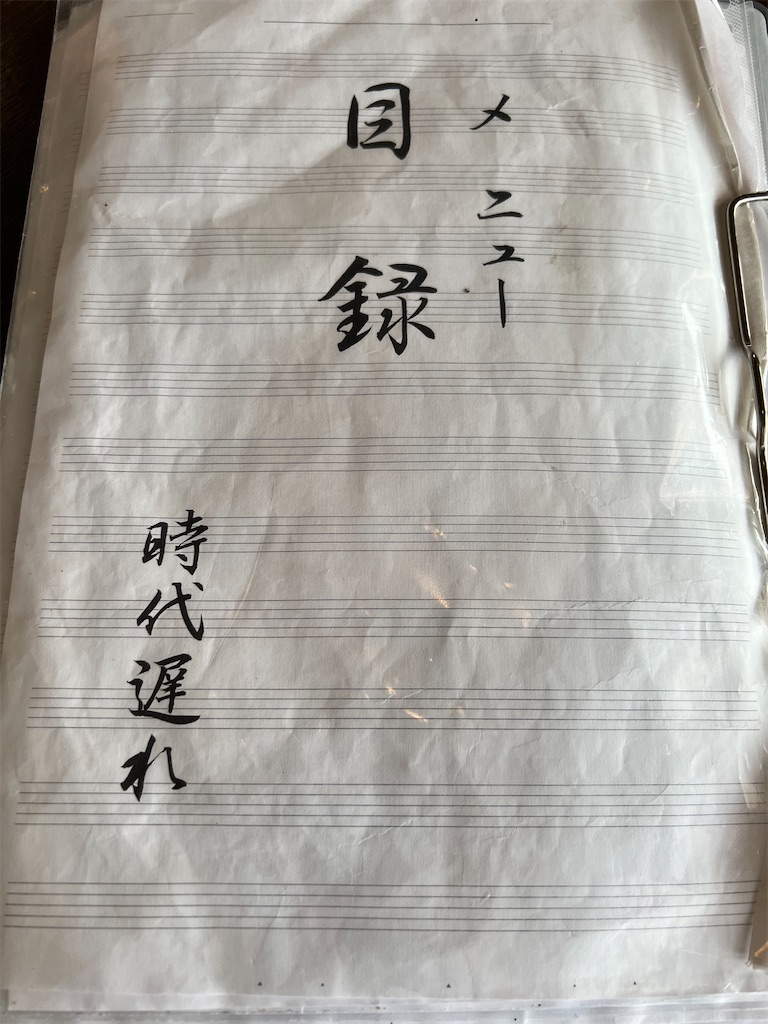 メニュー
目録
時代遅れ